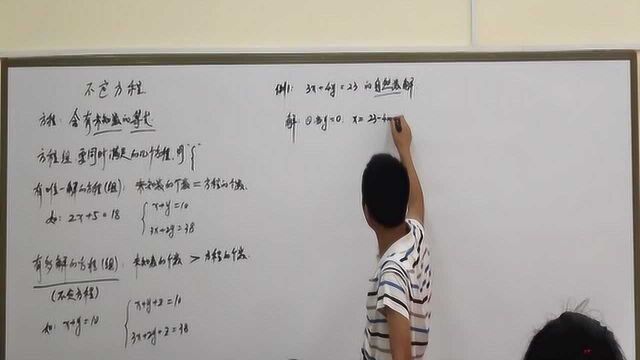 不定方程
方程：含有未知数的等式
方程组 要同时满足的几个方程，用"{"
有唯一解的方程(组)：未知数的个数=方程的个数.
如：2x+5=18
x+y=10
3x+2y=38
有多解的方程(组)：未知数的个数 > 方程的个数
(不定方程)
如：x+y=10
x+y+z=10
3x+2y+z=38
例1：3x+4y=23 的自然数解
解：①当y=0. x=23-4